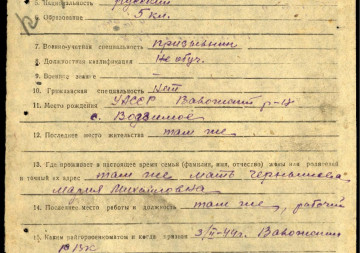 5. Национальность русский
6. Образование 5 кл.
7. Военно-учетная специальность призывник
8. Должностная квалификация не обуч.
9. Военное звание
10. Гражданская специальность нет
11. Место рождения УАССР Вавожский р-н
с. Водзимое
12. Последнее место жительства там же
13. Где проживает в настоящее время семья (фамилия, имя, отчество) жены или родителей
и точный их адрес там же мать
Мария Михайловна
14. Последнее место работы и должность там же, рабочий
15. Каким райгорвоенкоматом и когда призван 3/II-44г. Вавожским
РВК